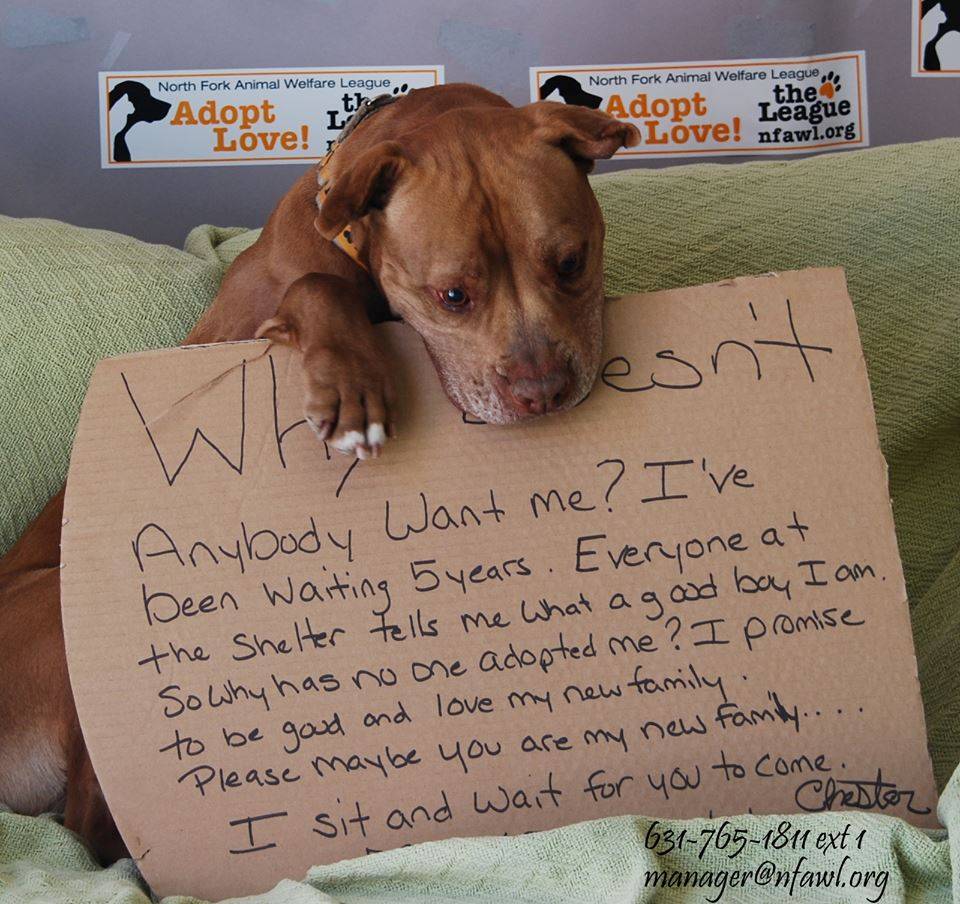 North Fork Animal Welfare League
Adopt the
Love!
North Fork Animal Welfare League
Adopt the
Love! League
nfawl.org
Why Doesn't
Anybody Want me? I've
been waiting 5 years. Everyone at
the Shelter tells me what a good boy I am.
So why has no one adopted me? I promise
to be good and love my new family.
Please maybe you are my new family....
I sit and wait for you to come.
Chester
631-765-1811 ext 1
manager@nfawl.org